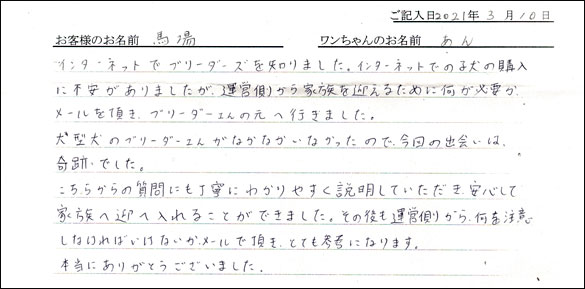 ご記入日2021年3月10日
お客様のお名前 馬場 ワンちゃんのお名前 あん
インターネットでブリーダーズを知りました。インターネットでの子犬の購入
に不安がありましたが、運営側から家族を迎えるために何が必要か
メールを頂き、ブリーダーさんの元へ行きました。
大型犬のブリーダーさんがなかなかいなかったので、今回の出会いは、
奇跡でした。
こちらからの質問にも丁寧にわかりやすく説明していただき、安心して
家族へ迎へ入れることができました。その後も運営側から、何を注意
しなければいけないかメールで頂き、とても参考になります。
本当にありがとうございました。